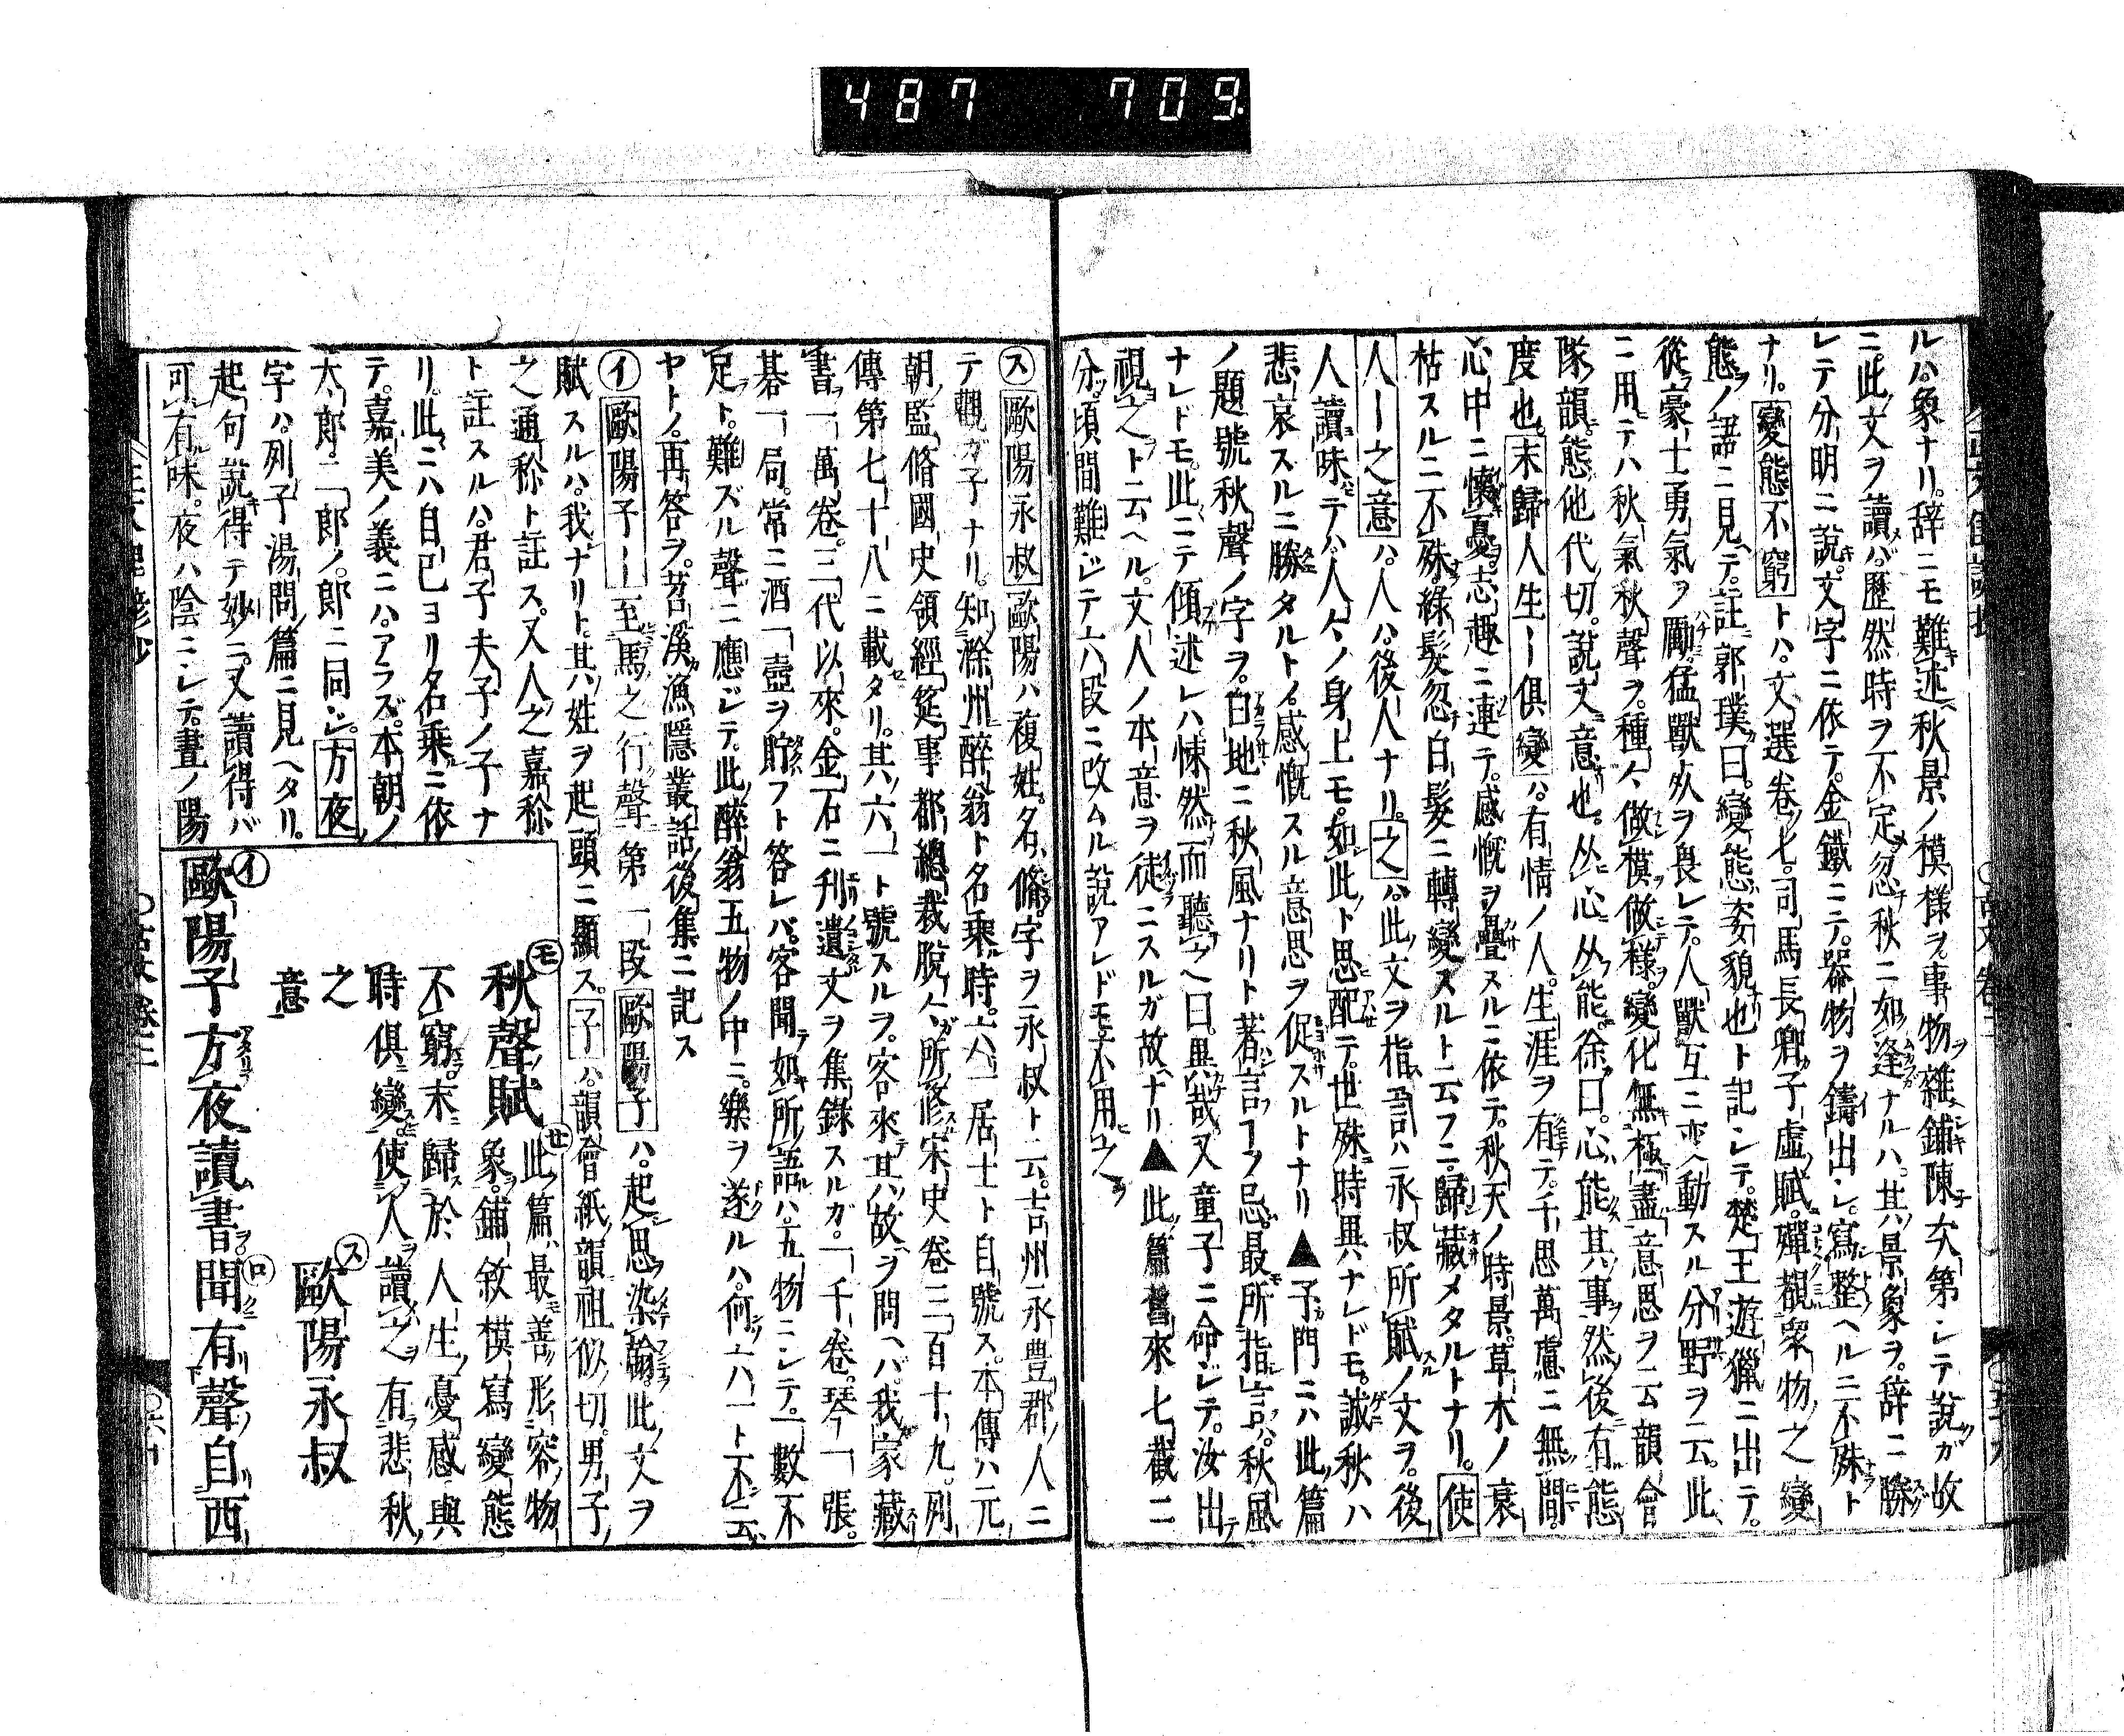 487 709.
ルハ象ナリ。辞ニモ難述秋景ノ模様ヲ。事物雜鋪陳次第シテ説ガ故
ニ。此文ヲ讀バ。歴然時ヲ不定忽秋ニ如逢ナルハ。其景象ヲ。辞ニ勝
レテ分明ニ說。文字ニ依テ。金鐵ニテ。器物ヲ鑄出シ。寫整ヘルニ不殊ト
ナリ。變態不窮トハ。文選卷七。司馬長卿子虛賦。殫覩衆物之變
態ノ語ニ見テ。註郭璞曰。變態姿貌也ト記シテ。楚王遊獵ニ出テ。
從豪士勇氣ヲ勵。猛獸ヲ畏シテ。人獸互ニ変動スル分野ヲ云。此
ニ用テハ秋氣秋聲ヲ。種々做模做様。變化無極盡意思ヲ云韻會
隊韻。態他代切。說文意也。从心从能。徐曰。心能其事然後有態
度也末歸人生ー俱變ハ。有情ノ人。生涯ヲ有テ。千思萬慮ニ無間。
心中ニ懷憂。志趣ニ連テ。感慨ヲ疊スルニ依テ。秋天ノ時景。草木ノ衰
枯スルニ不殊。綠髮忽白髪ニ轉變スルト云フニ。歸藏メタルトナリ。使
人ー之意ハ。人ハ。後人ナリ。之ハ。此文ヲ指。言ハ永叔所賦ノ文ヲ。後
人讀味テハ。人々ノ身上モ。如此ト思配テ。世殊時異ナレドモ。誠秋ハ
悲哀スルニ勝タルトイ。感慨スル意思ヲ促スルトナリ▲予門ニハ此篇
ノ題號秋聲ノ字ヲ。白地ニ秋風ナリト著言フヲ忌。最所指言ハ。秋風
ナレドモ。此ニテ傾述レハ。悚然而聽之曰。異哉。又童子ニ命ジテ。汝出
視之ト云ヘル。文人ノ本意ヲ徒ニスルガ故ナリ▲此篇舊來七截ニ
分。頃間難シテ六段ニ改ムル說アレドモ不用之
ス歐陽永叔歐陽ハ複姓。名ハ脩。字ヲ永叔ト云。吉州永豊郡ノ人ニ
テ觀ガ子ナリ。知滁州醉翁ト名乘。時六一居士ト自號ス。本傳ハ元
朝監脩國史領經筵事都總裁脫々ガ所修宋史卷三百十九。列
傳第七十八ニ載タリ。其六一ト號スルヲ。客來其故ヲ問ヘバ。我家藏
書一萬卷。三代以來。金石ニ刋遺文ヲ集錄スルガ。一千卷。琴一張。
碁一局。常ニ酒一壺ヲ貯フト答レバ。客聞如所語ハ。五物ニシテ。一數不
足ト。難ズル聲ニ應ジテ。此醉翁五物ノ中ニ。樂ヲ遂ルハ。何六一ト不云
ヤトノ。再答ヲ。苕溪漁隱叢話後集ニ記ス
イ歐陽子ー至馬之行聲第一段歐陽子ハ。起思染翰。此文ヲ
賦スルハ。我ナリト。其姓ヲ起頭ニ顯ス。子ハ。韻會紙韻。祖似切。男子
之通稱ト註ス。又人之嘉稱
ト註スルハ。君子夫子ノ子ナ
リ。此ニハ自已ヨリ名乗ニ依
テ。嘉美ノ義ニハアラズ。本朝ノ
太郎二郎ノ。郎ニ同シ。方夜
字ハ。列子湯問篇ニ見ヘタリ。
起句說得テ妙ニ。又讀得バ
可有味。夜ハ陰ニシテ。晝ノ陽
モ秋聲賦
セ此篇最善形容物
象。鋪敘模寫變態
不窮。末歸於人生憂感與
時俱變使人讀之有悲秋
之
意
ス歐陽永叔
イ歐陽子方夜讀書。聞ロ有聲自西